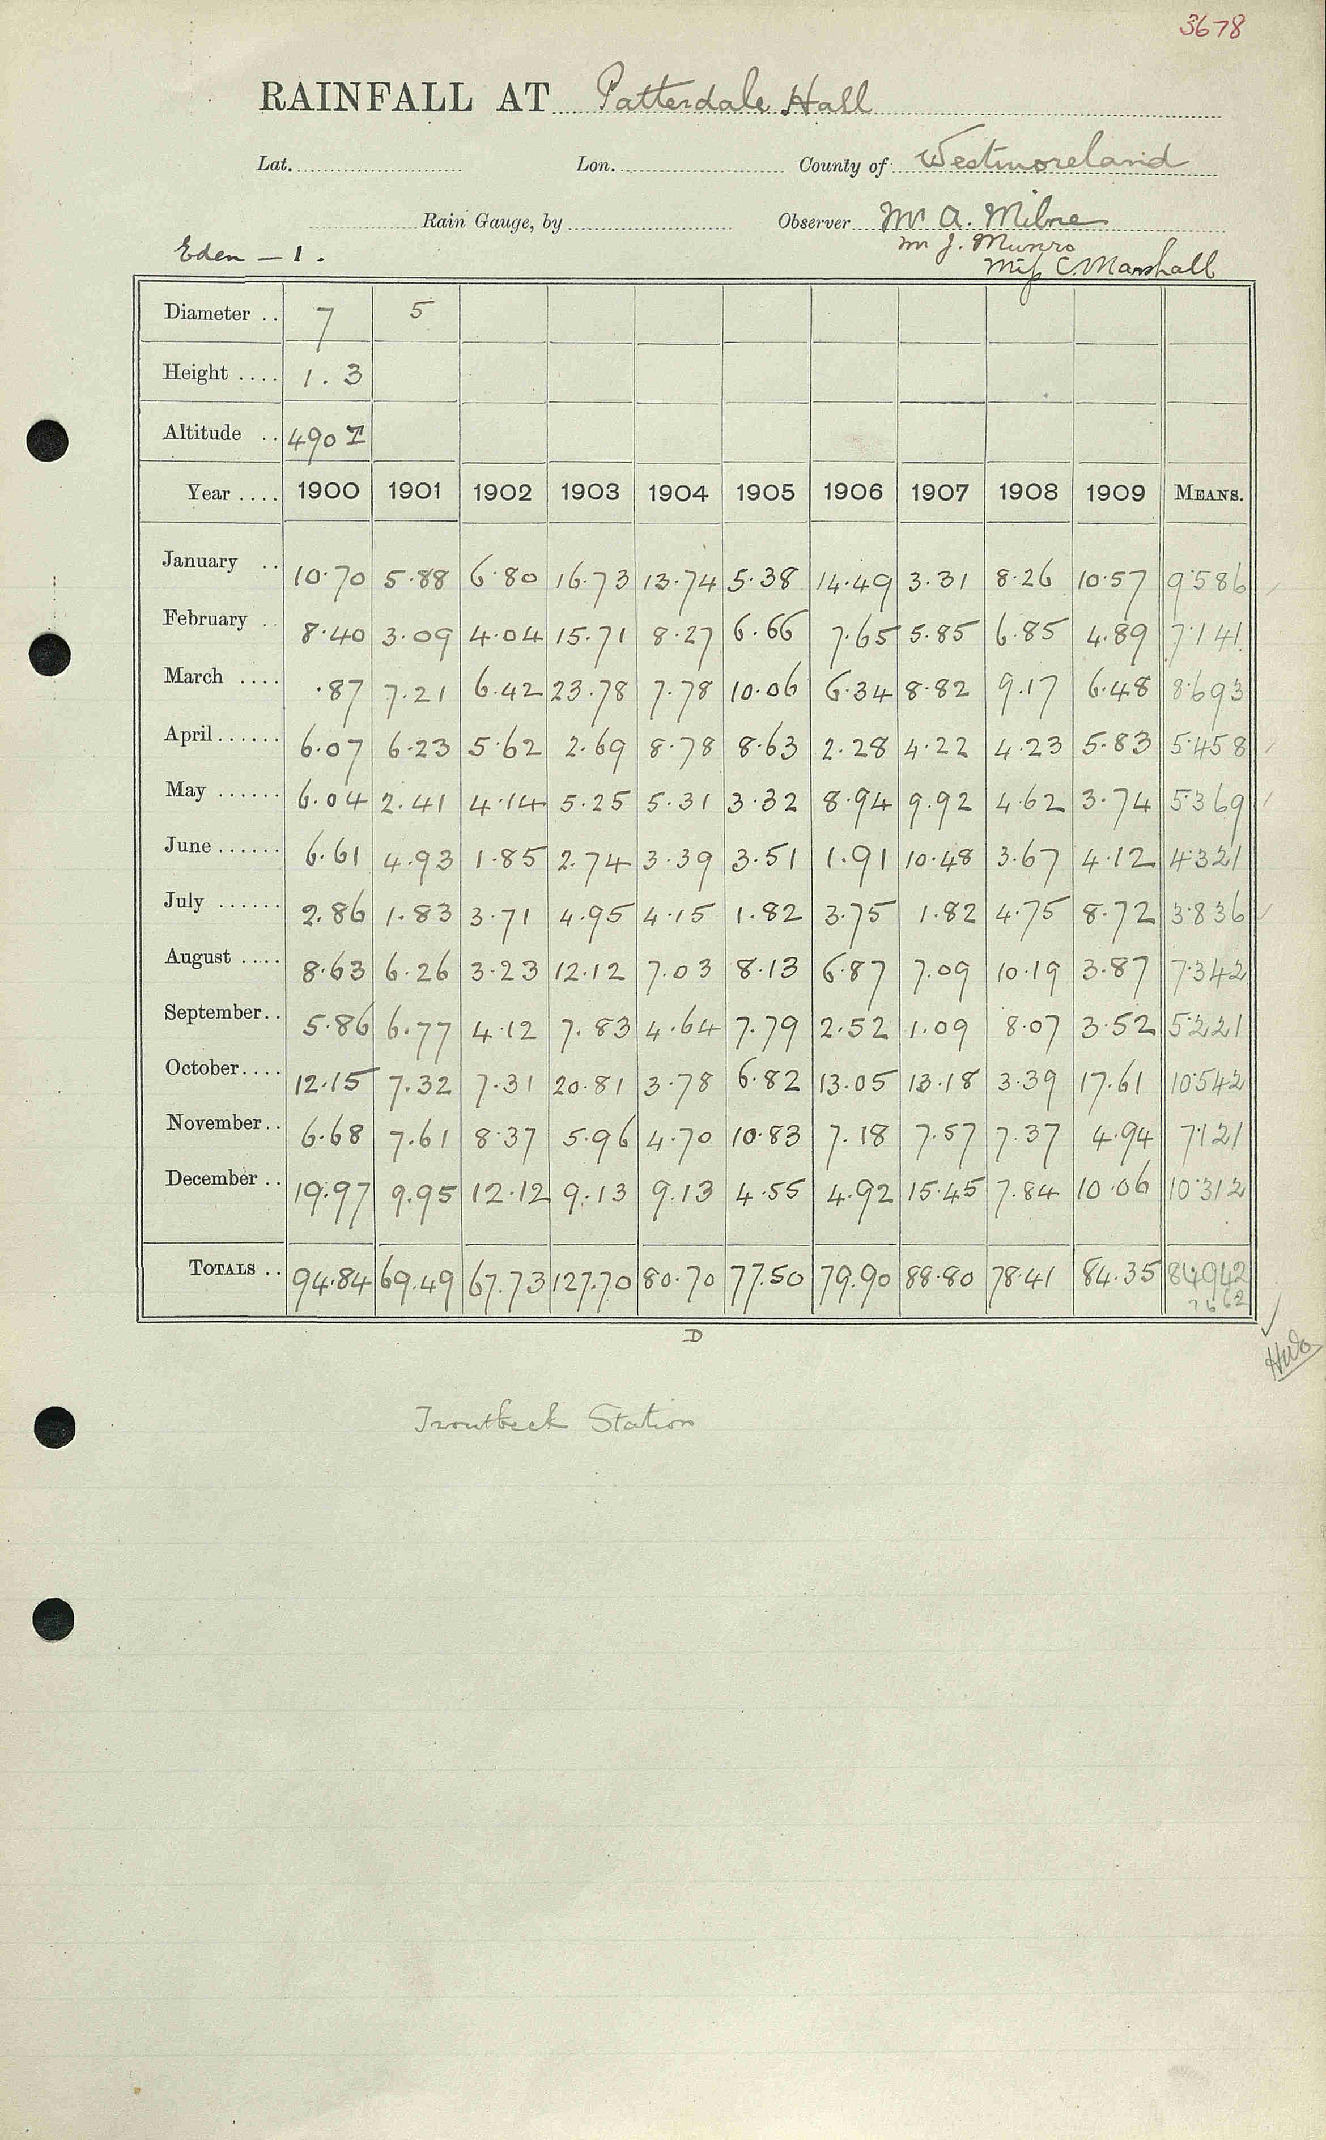 3678
RAINFALL AT Patterdale Hall
Lat. Lon. County of Westmoreland
Rain Gauge, by Observer Mr A. Milne
Mr J. Munro
Eden - 1. Miss C Marshall
Diameter .. 7 5
Height .... 1.3
Altitude .. 490 T
Year .... 1900 1901 1902 1903 1904 1905 1906 1907 1908 1909 MEANS.
January .. 10.70 5.88 6.80 16.73 13.74 5.38 14.49 3.31 8.26 10.57 9.586
February .. 8.40 3.09 4.04 15.71 8.27 6.66 7.65 5.85 6.85 4.89 7.141
March .... .87 7.21 6.42 23.78 7.78 10.06 6.34 8.82 9.17 6.48 8.693
April ...... 6.07 6.23 5.62 2.69 8.78 8.63 2.28 4.22 4.23 5.83 5.458
May ...... 6.04 2.41 4.14 5.25 5.31 3.32 8.94 9.92 4.62 3.74 5.369
June ...... 6.61 4.93 1.85 2.74 3.39 3.51 1.91 10.48 3.67 4.12 4.321
July ...... 2.86 1.83 3.71 4.95 4.15 1.82 3.75 1.82 4.75 8.72 3.836
August .... 8.63 6.26 3.23 12.12 7.03 8.13 6.87 7.09 10.19 3.87 7.342
September.. 5.86 6.77 4.12 7.83 4.64 7.79 2.52 1.09 8.07 3.52 5.221
October.... 12.15 7.32 7.31 20.81 3.78 6.82 13.05 13.18 3.39 17.61 10.542
November.. 6.68 7.61 8.37 5.96 4.70 10.83 7.18 7.57 7.37 4.94 7.121
December .. 19.97 9.95 12.12 9.13 9.13 4.55 4.92 15.45 7.84 10.06 10.312
TOTALS .. 94.84 69.49 67.73 127.70 80.70 77.50 79.90 88.80 78.41 84.35 84.942
D
Troutbeck Station